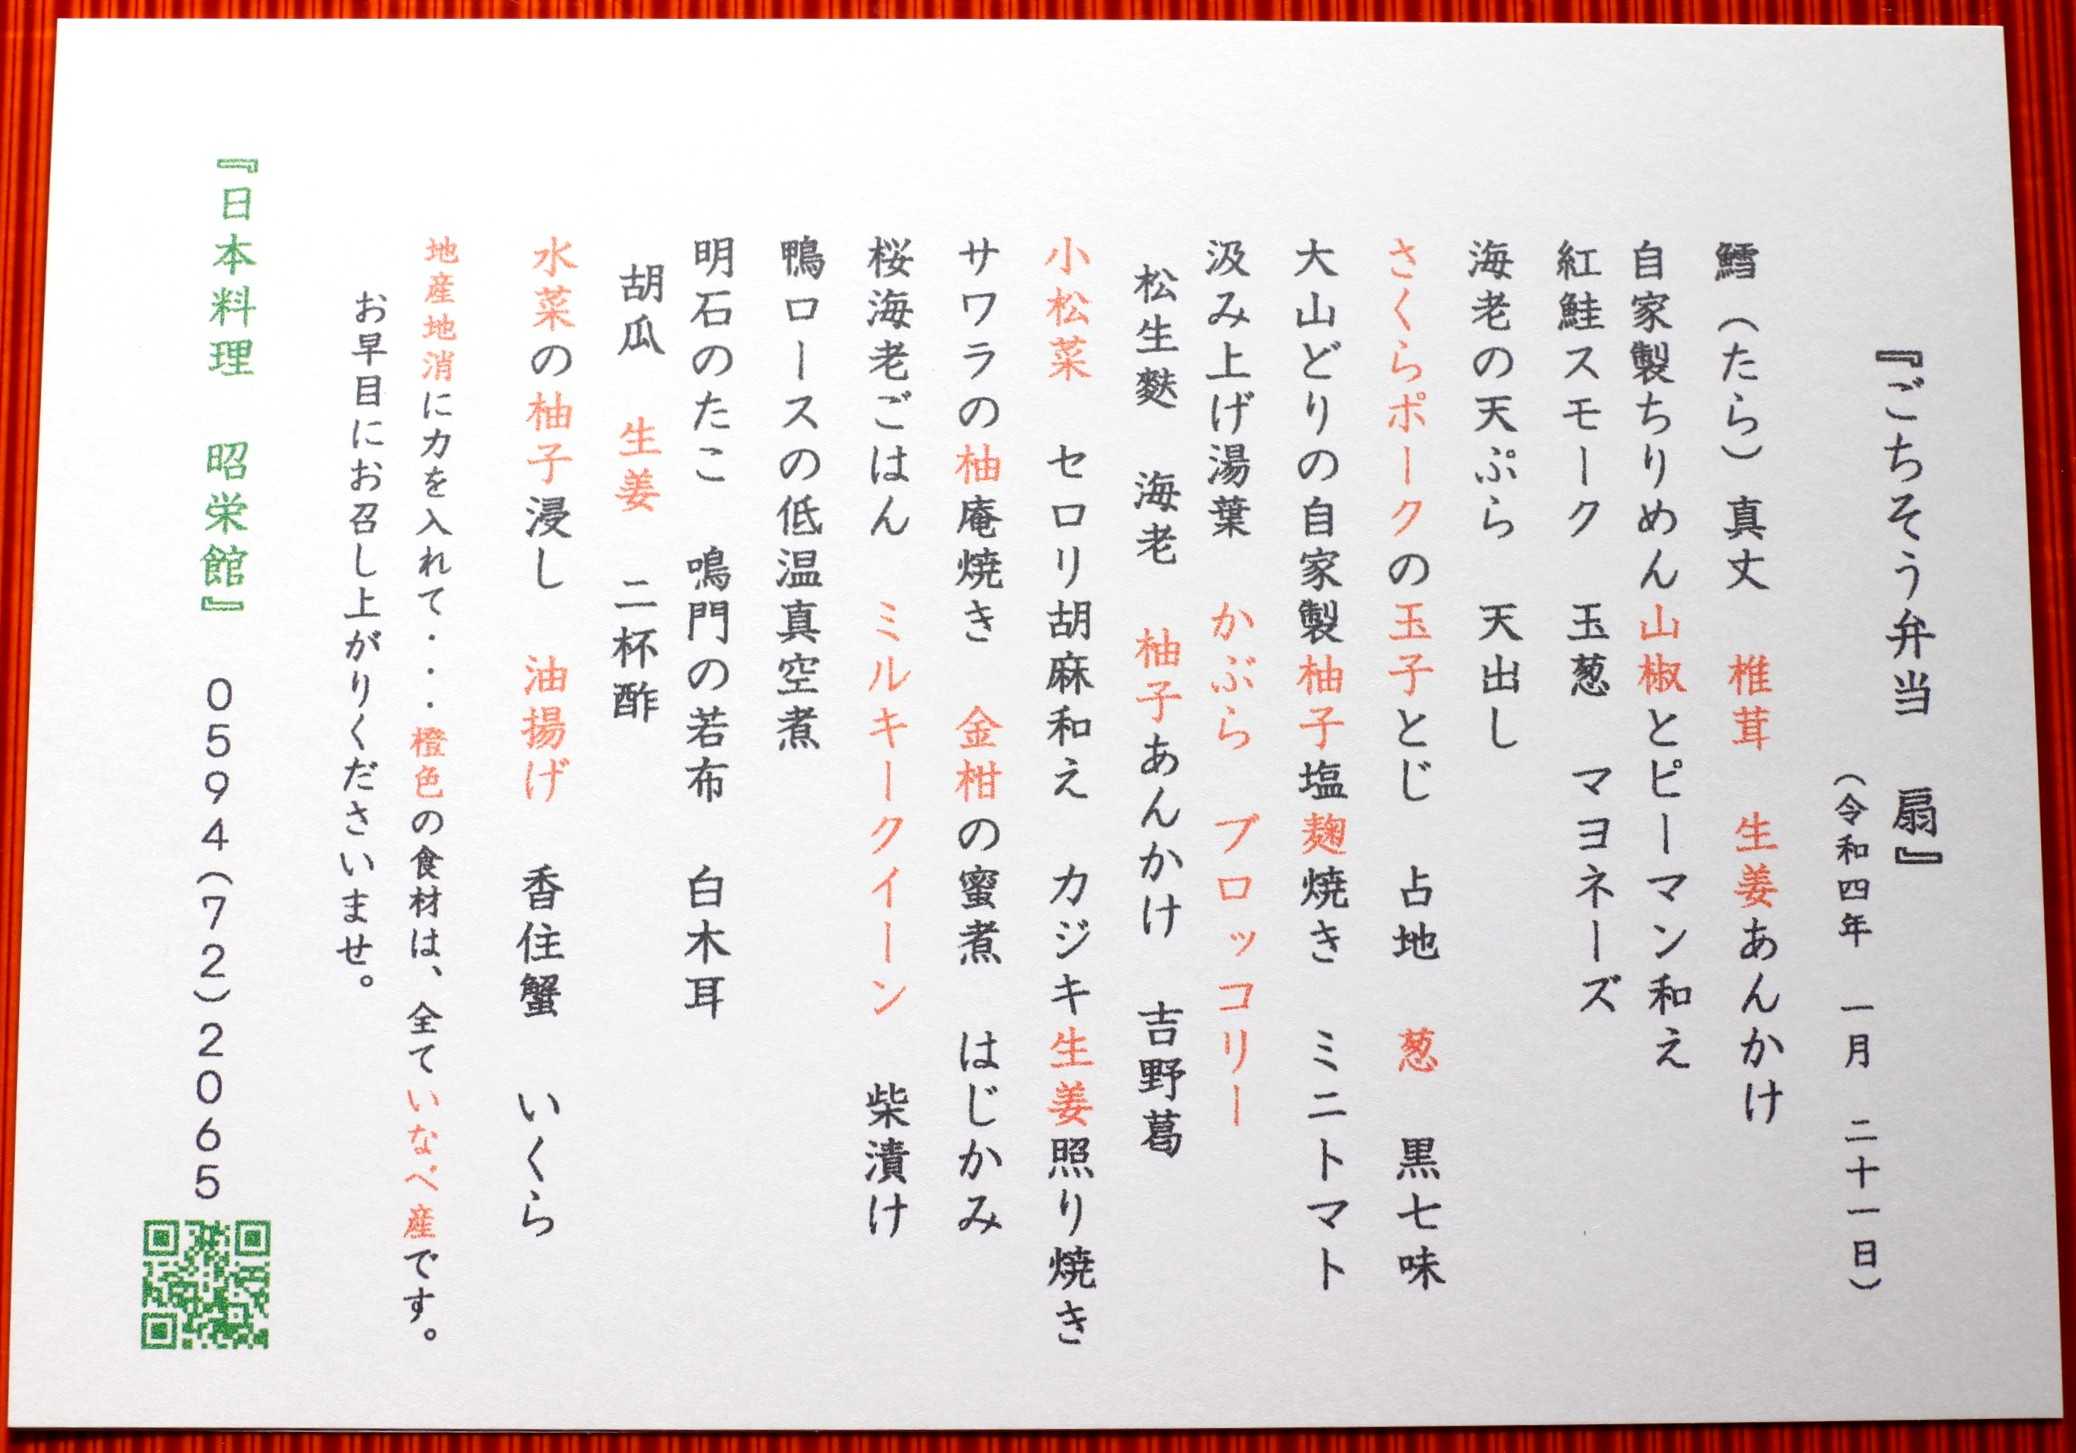 『ごちそう弁当　扇』
（令和四年　一月　二十一日）
鱈（たら）真丈　椎茸　生姜あんかけ
自家製ちりめん山椒とピーマン和え
紅鮭スモーク　玉葱　マヨネーズ
海老の天ぷら　天出し
さくらポークの玉子とじ　占地　葱　黒七味
大山どりの自家製柚子塩麹焼き　ミニトマト
汲み上げ湯葉　かぶら　ブロッコリー
松生麩　海老　柚子あんかけ　吉野葛
小松菜　セロリ胡麻和え　カジキ生姜照り焼き
サワラの柚庵焼き　金柑の蜜煮　はじかみ
桜海老ごはん　ミルキークイーン　柴漬け
鴨ロースの低温真空煮
明石のたこ　鳴門の若布　白木耳
胡瓜　生姜　二杯酢
水菜の柚子浸し　油揚げ　香住蟹　いくら
地産地消に力を入れて・・・橙色の食材は、全ていなべ産です。
お早目にお召し上がりくださいませ。
『日本料理　昭栄館』　０５９４（７２）２０６５